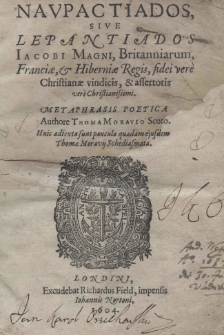 NAVPACTIADOS,
SIVE
LEPANTIADOS
IACOBI MAGNI, Britanniarum,
Franciæ, & Hiberniæ Regis, fidei verè
Christianæ vindicis, & assertoris
verè Christianissimi.
METAPHRASIS POETICA
Authore THOMA MORAVIO Scoto.
Huic adiecta sunt paucula quædam ejusdem
Thomæ Moravij Schediasmata.
LONDINI,
Excudebat Richardus Field, impensis
Iohannis Nortoni.
1604